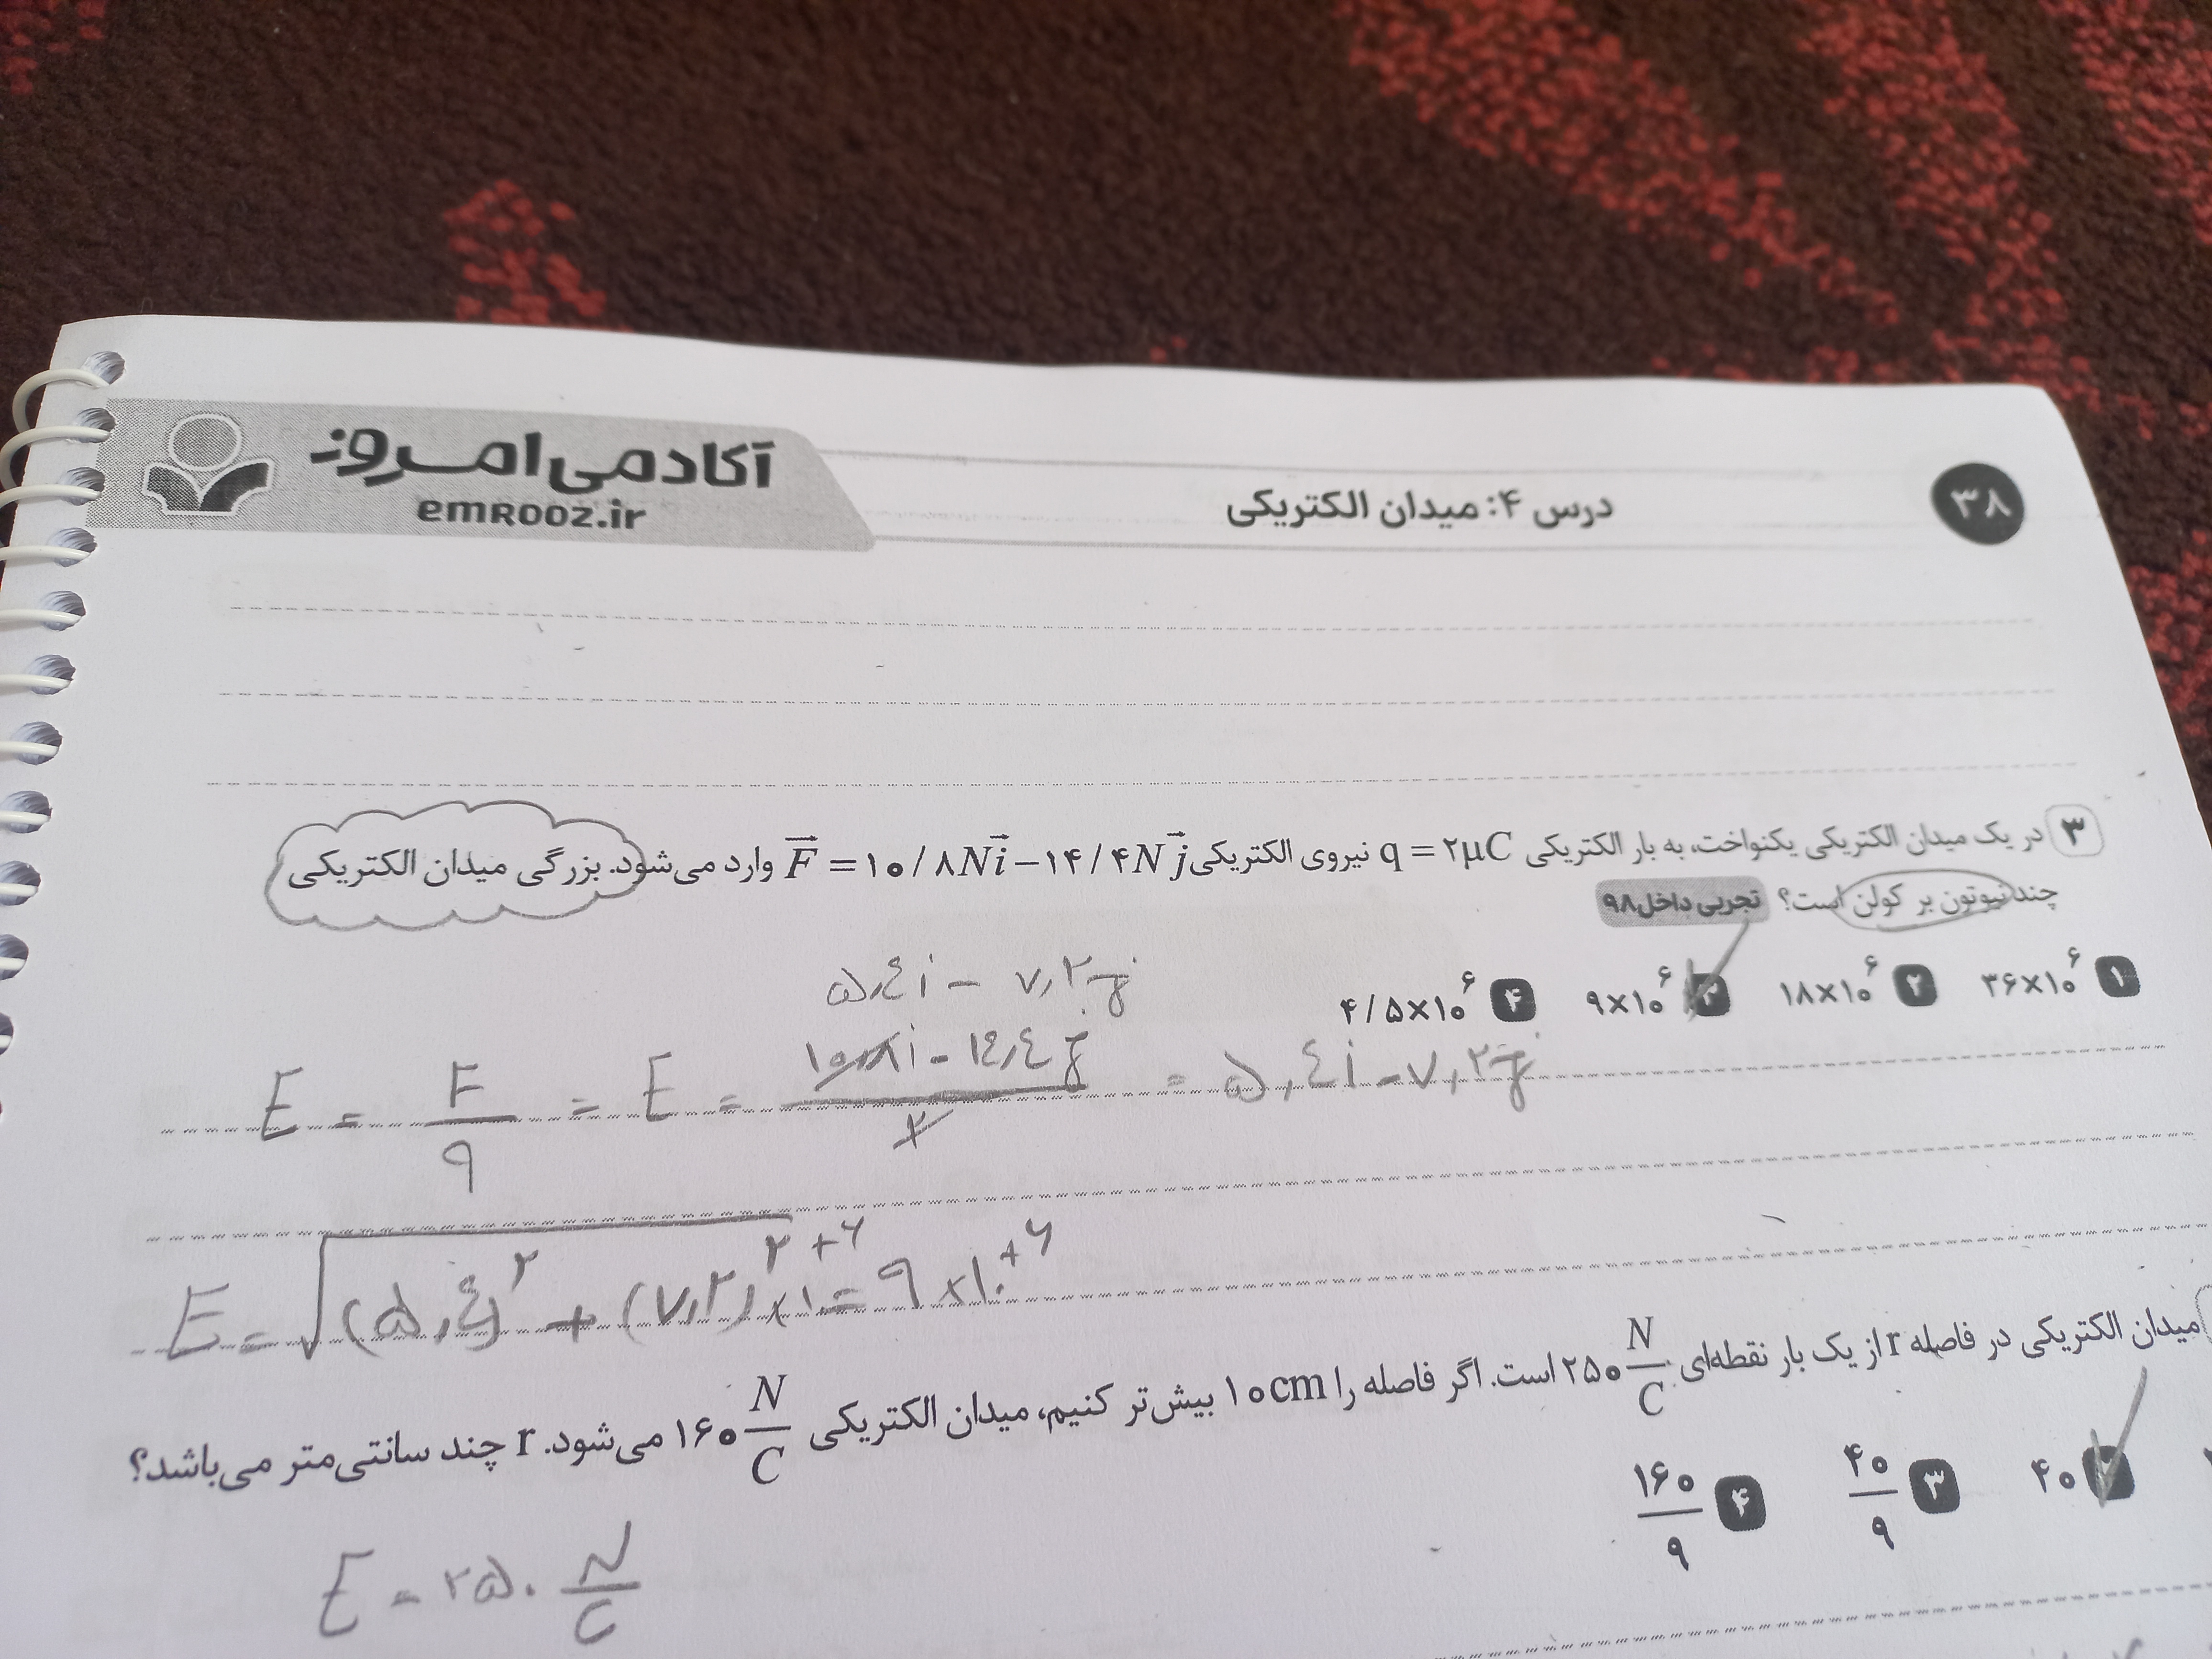 آکادمی امروز
emrooz.ir
درس ۴: میدان الکتریکی
۳۸
۳ در یک میدان الکتریکی یکنواخت، به بار الکتریکی q = ۲μC نیروی الکتریکی F = ۱۰/۸Ni − ۱۴/۴Nj وارد می‌شود. بزرگی میدان الکتریکی
چند نیوتون بر کولن است؟ تجربی داخل ۹۸
۱ ۳۶×۱۰^۶ ۲ ۱۸×۱۰^۶ ۳ ۹×۱۰^۶ ۴ ۴/۵×۱۰^۶
۵,۴i − ۷,۲j
E = F/q = E = (۱۰,۸i − ۱۴,۴j)/۲ = ۵,۴i − ۷,۲j
E = √(۵,۴)^۲ + (۷,۲)^۲ ×۱۰^+۶ = ۹×۱۰^+۶
میدان الکتریکی در فاصله r از یک بار نقطه‌ای ۲۵۰ N/C است. اگر فاصله را ۱۰cm بیش‌تر کنیم، میدان الکتریکی ۱۶۰ N/C می‌شود. r چند سانتی‌متر می‌باشد؟
۲ ۴۰ ۳ ۴۰/۹ ۴ ۱۶۰/۹
E = ۲۵۰ N/C